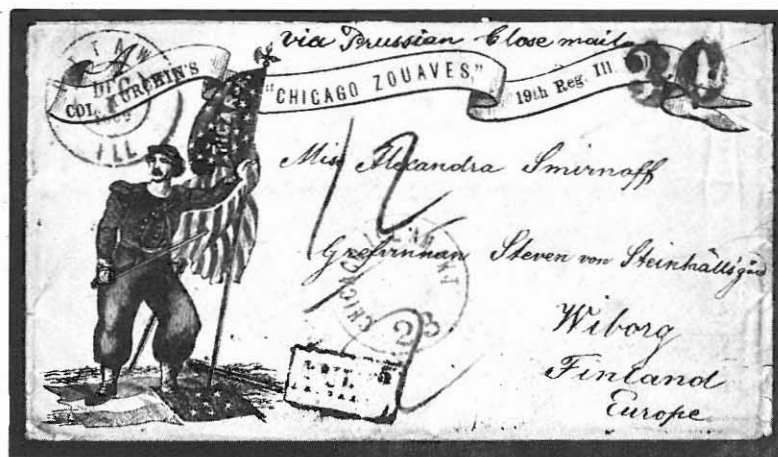 via Prussian Close mail
COL. TURCHIN'S "CHICAGO ZOUAVES," 19th Reg. Ill.
30
ILL
12
Miss Alexandra Smirnoff
Grefvinnan Steven von Steinhällsgård
CHICAGO
Wiborg
Finland
Europe